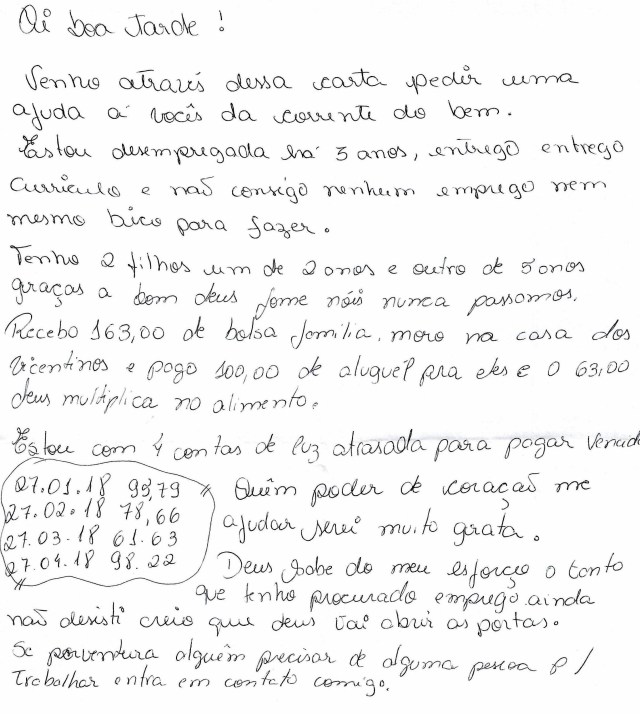 Oi boa tarde !
Venho através dessa carta pedir uma
ajuda a vocês da corrente do bem.
Estou desempregada há 3 anos, entrego entrego
curriculo e não consigo nenhum emprego nem
mesmo bico para fazer.
Tenho 2 filhos um de 2 anos e outro de 5 anos
graças a bom deus fome nóis nunca passamos.
Recebo 163,00 de bolsa familia, moro na casa dos
vicentinos e pago 100,00 de aluguel pra eles e o 63,00
deus multiplica no alimento.
Estou com 4 contas de luz atrasada para pagar
27.01.18 93,79
27.02.18 78,66
27.03.18 61.63
27.04.18 98.22
Quém poder de coração me
ajudar serei muito grata.
Deus sobe do meu esforço o tanto
que tenho procurado emprego ainda
não desisti creio que deus vai abrir as portas.
Se porventura alguém precisar de alguma pessoa p/
trabalhar entra em contato comigo.